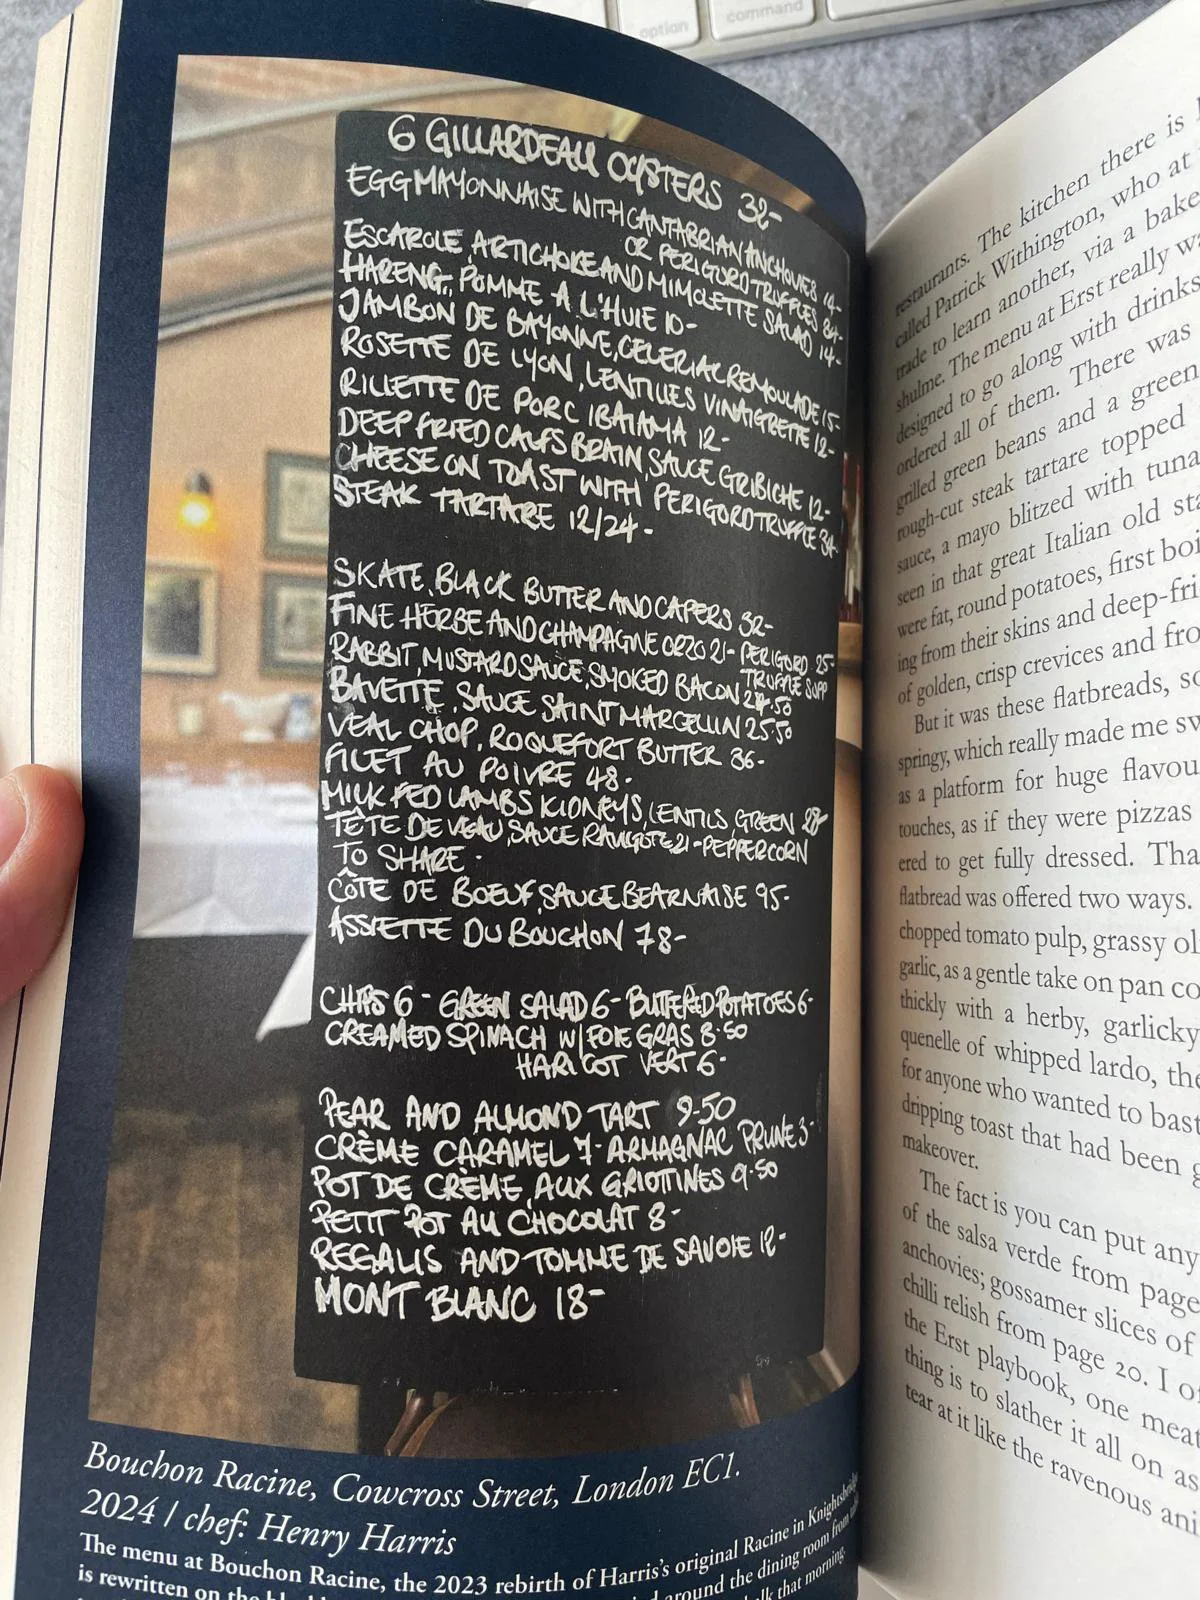 option
command
6 GILLARDEAU OYSTERS 32-
EGG MAYONNAISE WITH CANTABRIAN ANCHOVIES 14-
OR PERIGORD TRUFFLES 24-
ESCAROLE, ARTICHOKE AND MIMOLETTE SALAD 14-
HARENG, POMME A L'HUIE 10-
JAMBON DE BAYONNE, CELERIAC REMOULADE 15-
ROSETTE DE LYON, LENTILLES VINAIGRETTE 12-
RILLETTE DE PORC IBAIAMA 12-
DEEP FRIED CALFS BRAIN, SAUCE GRIBICHE 12-
CHEESE ON TOAST WITH PERIGORD TRUFFLE 34-
STEAK TARTARE 12/24-
SKATE, BLACK BUTTER AND CAPERS 32-
FINE HERBE AND CHAMPAGNE ORZO 21- PERIGORD 25-
TRUFFLE SUPP
RABBIT, MUSTARD SAUCE, SMOKED BACON
BAVETTE, SAUCE SAINT MARCELLIN 25·50
VEAL CHOP, ROQUEFORT BUTTER 36-
FILET AU POIVRE 48-
MILK FED LAMBS KIDNEYS, LENTILS, GREEN 28-
TÊTE DE VEAU, SAUCE RAVIGOTE 21- PEPPERCORN
TO SHARE -
CÔTE DE BOEUF, SAUCE BEARNAISE 95-
ASSIETTE DU BOUCHON 78-
CHIPS 6- GREEN SALAD 6- BUTTERED POTATOES 6-
CREAMED SPINACH W/ FOIE GRAS 8·50
HARICOT VERT 6-
PEAR AND ALMOND TART 9-50
CRÈME CARAMEL 7- ARMAGNAC PRUNE 3-
POT DE CRÈME, AUX GRIOTTINES 9·50
PETIT POT AU CHOCOLAT 8-
REGALIS AND TOMME DE SAVOIE 12-
MONT BLANC 18-
Bouchon Racine, Cowcross Street, London EC1.
2024 / chef: Henry Harris
The menu at Bouchon Racine, the 2023 rebirth of Harris's original Racine in Knightsbridge
is rewritten on the around the dining room from
that morning.
restaurants. The kitchen there is
called Patrick Withington, who at
trade to learn another, via a bake
shulme. The menu at Erst really wa
designed to go along with drinks
ordered all of them. There was
grilled green beans and a green
rough-cut steak tartare topped
sauce, a mayo blitzed with tuna
seen in that great Italian old sta
were fat, round potatoes, first boi
ing from their skins and deep-fri
of golden, crisp crevices and fro
But it was these flatbreads, so
springy, which really made me sw
as a platform for huge flavou
touches, as if they were pizzas
ered to get fully dressed. Tha
flatbread was offered two ways.
chopped tomato pulp, grassy ol
garlic, as a gentle take on pan co
thickly with a herby, garlicky
quenelle of whipped lardo, the
for anyone who wanted to bast
dripping toast that had been g
makeover.
The fact is you can put any
of the salsa verde from page
anchovies; gossamer slices of
chilli relish from page 20. I o
the Erst playbook, one meat
thing is to slather it all on as
tear at it like the ravenous ani